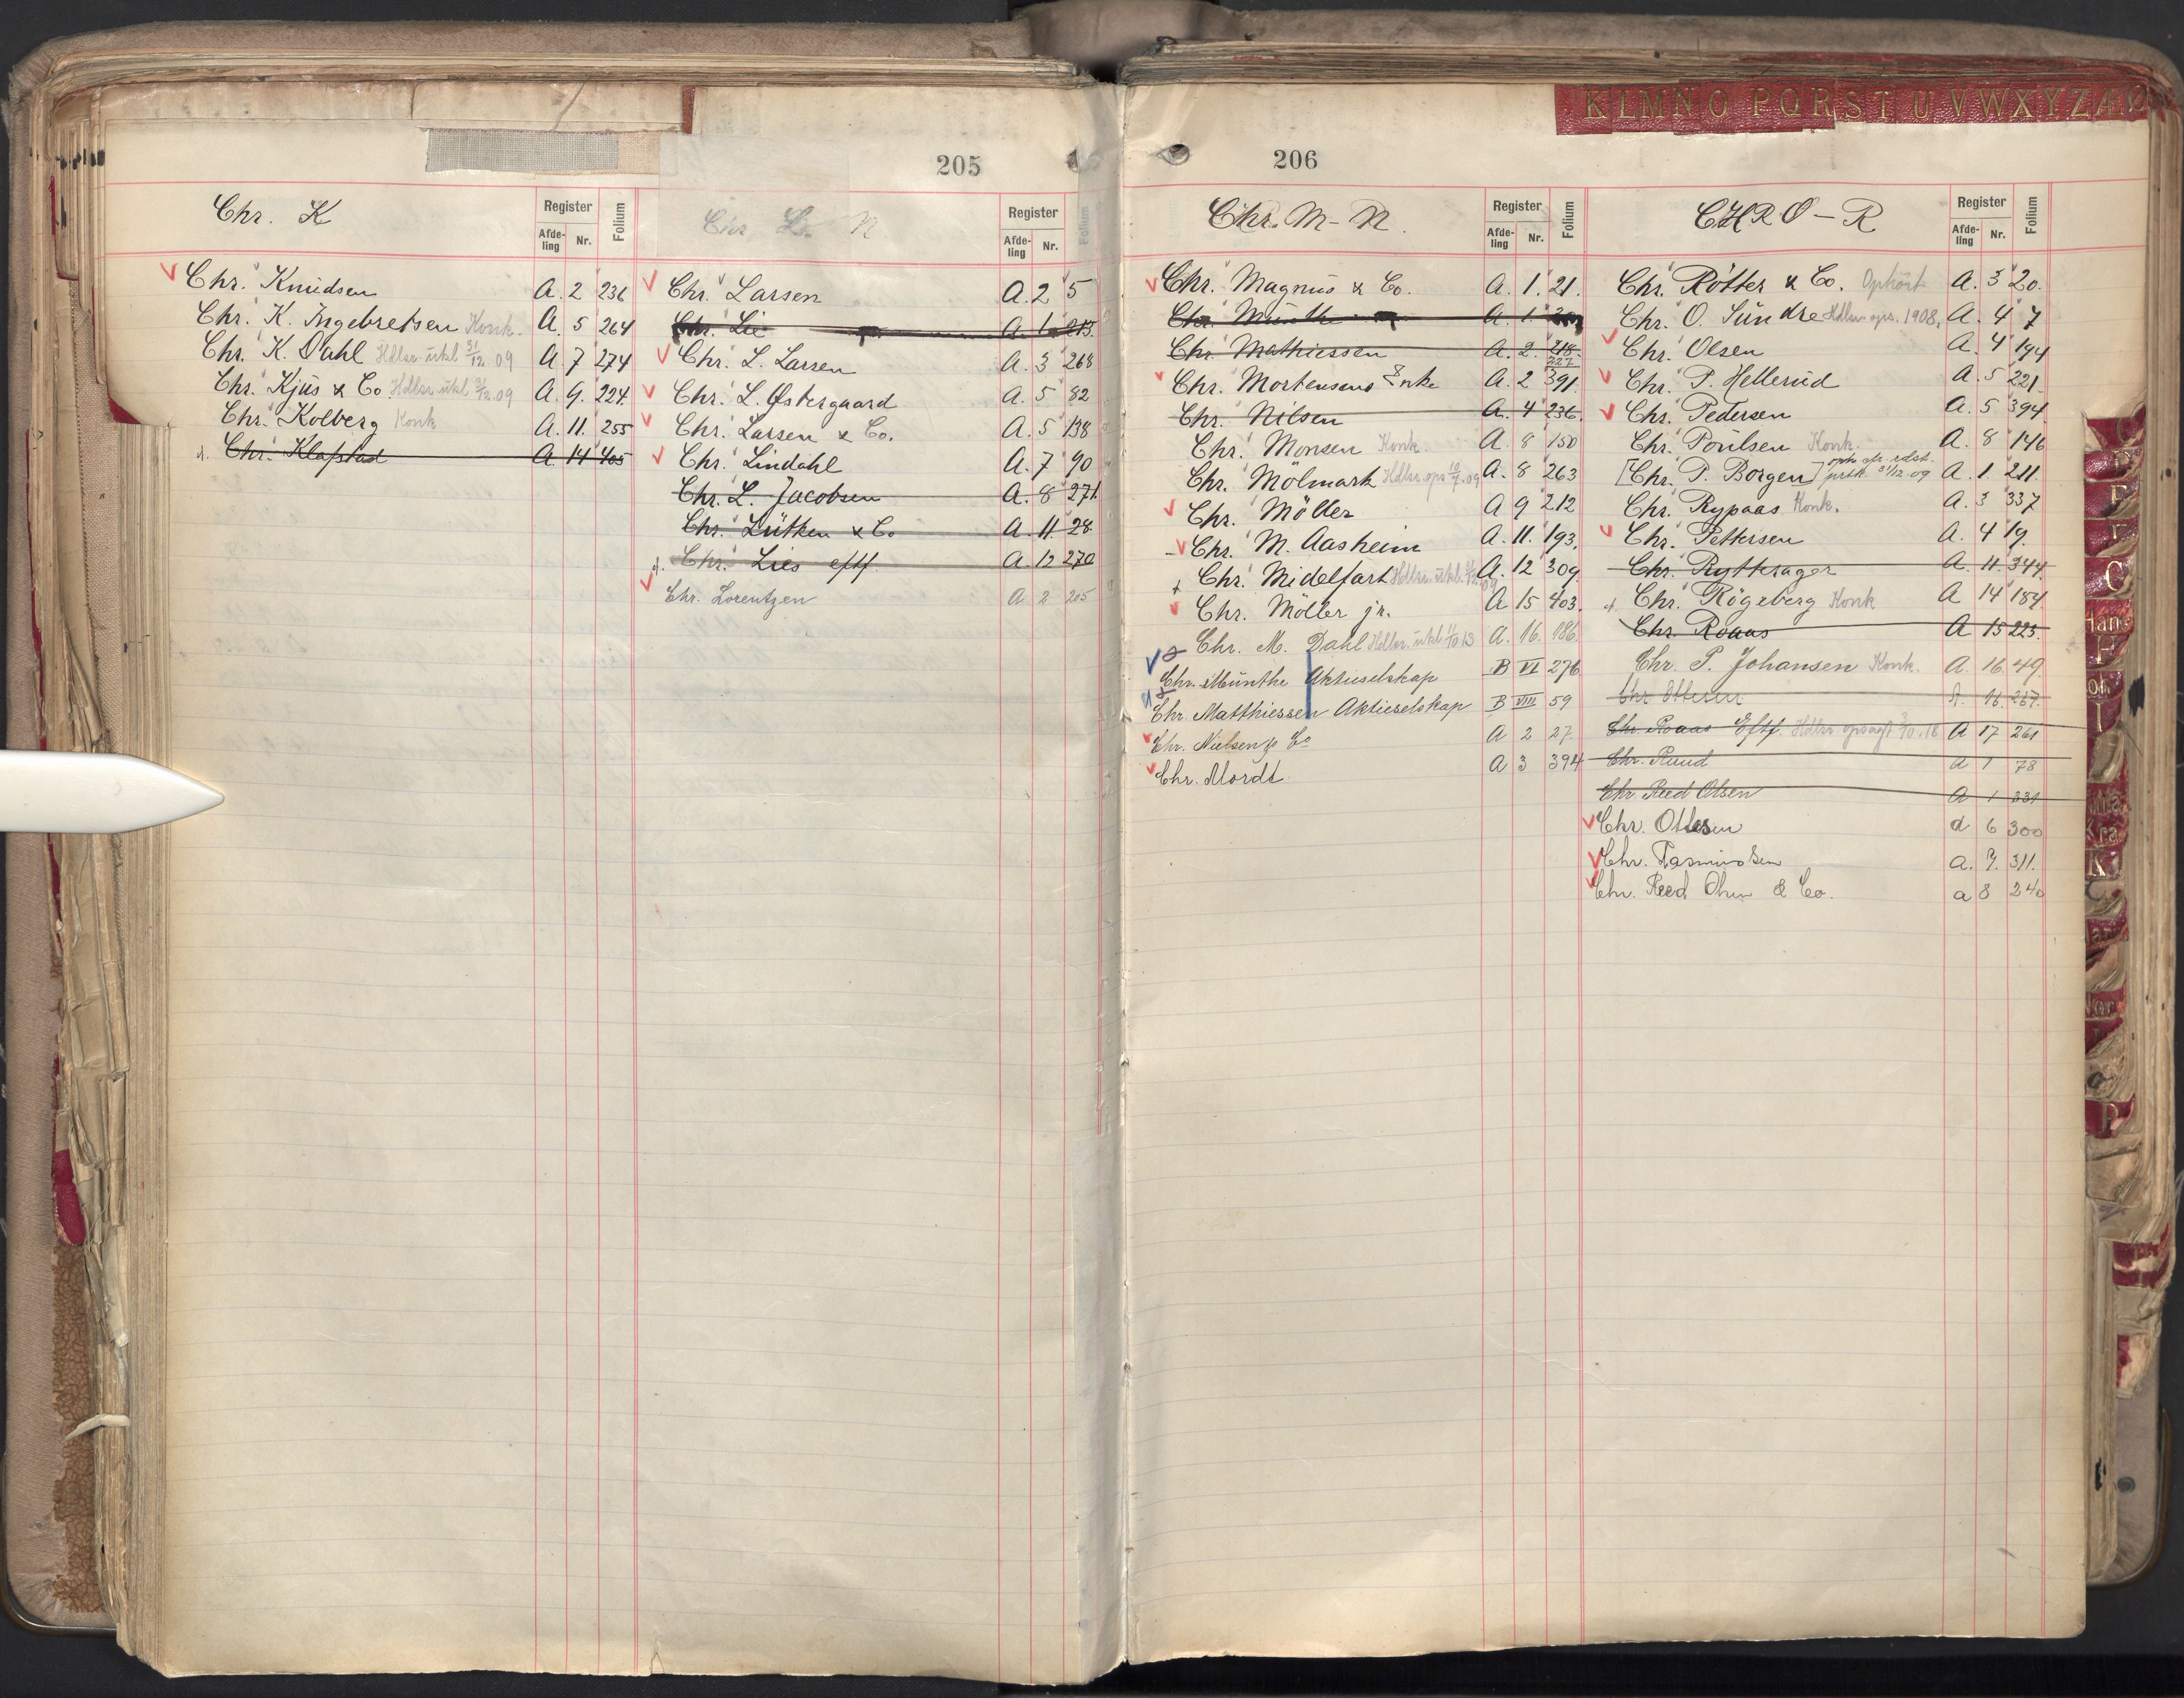 205
Chr. K
Register
Afde-
ling
Nr.
Folium
Chr. Knudsen A. 2 236
Chr. K. Ingebretsen Konk. A. 5 264
Chr. K. Dahl Hdlsr. utkl 31/12 09 A. 7 274
Chr. Kjus & Co Hdlsr. utkl 31/12.09 A. 9. 224.
Chr. Kolberg Konk A. 11. 255
Chr. Klafstad A. 14 405
Chr L N
Register
Afde-
ling
Nr.
Folium
Chr. Larsen A. 2 5
Chr. Lie A. 1 213.
Chr. L. Larsen A. 3 268
Chr. L. Østergaard A. 5 82
Chr. Larsen & Co. A. 5 198
Chr. Lindahl A. 7 90
Chr. L. Jacobsen A. 8 271.
Chr. Lütken & Co A. 11. 28
Chr. Lies eftf. A. 12 270
Chr. Lorentzen A 2 205
206
Chr. M-N.
Register
Afde-
ling
Nr.
Folium
Chr. Magnus & Co. A. 1. 21.
Chr. Munthe A. 1.
Chr. Mathiessen A. 2. 218.
227
Chr. Mortensens Enke A. 2 391.
Chr. Nilsen A. 4 236.
Chr. Monsen Konk. A. 8 150
Chr. Mölmark Hdlsr. ops 09 A. 8 263
Chr. Möller A 9 212
Chr. M. Aasheim A. 11. 193.
Chr. Midelfart Hdlsr. utkl. 09 A. 12 309
Chr. Möller jr. A 15 403.
Chr. M. Dahl Hdlsr. utkl 13 A. 16. 186
Chr. Munthe Aktieselskap B VI 276
Chr. Matthiessen Aktieselskap B VIII 59
Chr. Nielsen & Co A 2 27.
Chr. Mordt A 3 394
CHR O-R
Register
Afde-
ling
Nr.
Folium
Chr. Rötter & Co. Ophört A. 3 20.
Chr. O. Sundre Hdlsr. ops. 1908. A. 4 7
Chr. Olsen A. 4 194
Chr. P. Hellerud A. 5 221.
Chr. Pedersen A. 5 394.
Chr. Poulsen Konk. A. 8 146
[Chr. P. Borgen] 31/12.09 A. 1. 211.
Chr. Rypaas Konk. A. 3 337
Chr. Pettersen A. 4 19.
Chr. Rytterager A. 11. 344.
Chr. Rögeberg Konk A 14 184.
Chr. Roaas A 15 223.
Chr. P. Johansen Konk. A. 16 49.
Chr Ottesen A. 16. 267.
Chr. Roaas Eftf. Hdlsr. opsagt 18 A 17 261
Chr. Ruud A 1 78
Chr. Reed Olsen A 1 331
Chr. Ottesen A 6 300
Chr. Rasmussen A. 7. 311.
Chr. Reed Olsen & Co. a 8 240
K L M N O P Q R S T U V W X Y Z Æ Ø